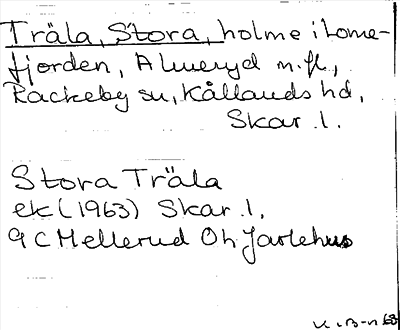 Träla, Stora, holme i Lome-
fjorden, Almeryd m.fl.,
Rackeby sn, Kållands hd,
Skar. l.
Stora Träla
ek (1963) Skar. l.
9 C Mellerud Öh Jarlehus